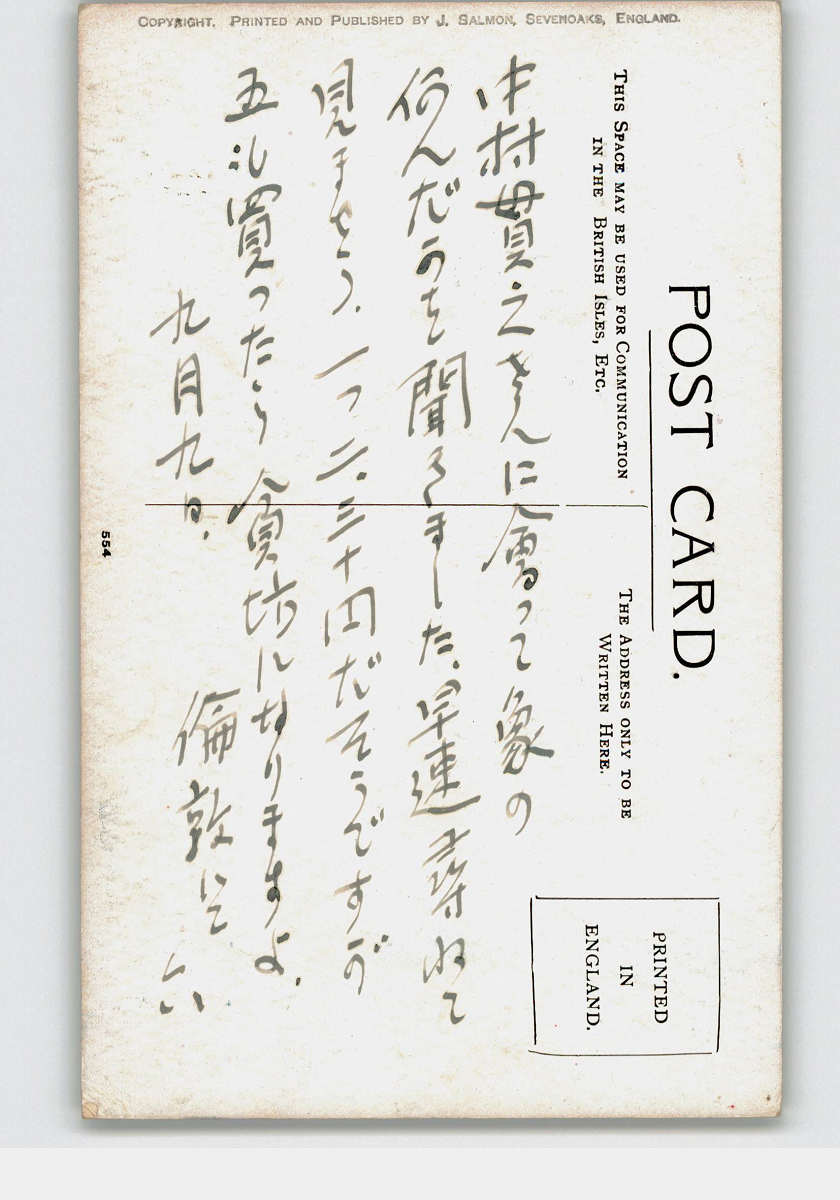 COPYRIGHT. PRINTED AND PUBLISHED BY J. SALMON, SEVENOAKS, ENGLAND.
POST CARD.
THIS SPACE MAY BE USED FOR COMMUNICATION
IN THE BRITISH ISLES, ETC.
THE ADDRESS ONLY TO BE
WRITTEN HERE.
PRINTED
IN
ENGLAND.
中村貫之さんに會って象の
何んだうを聞きました、早速尋ねて
見ませう、一つ二、三十円だそうですが
五つも買ったら貧坊になりますよ、
九月九日、
倫敦にて 六
554